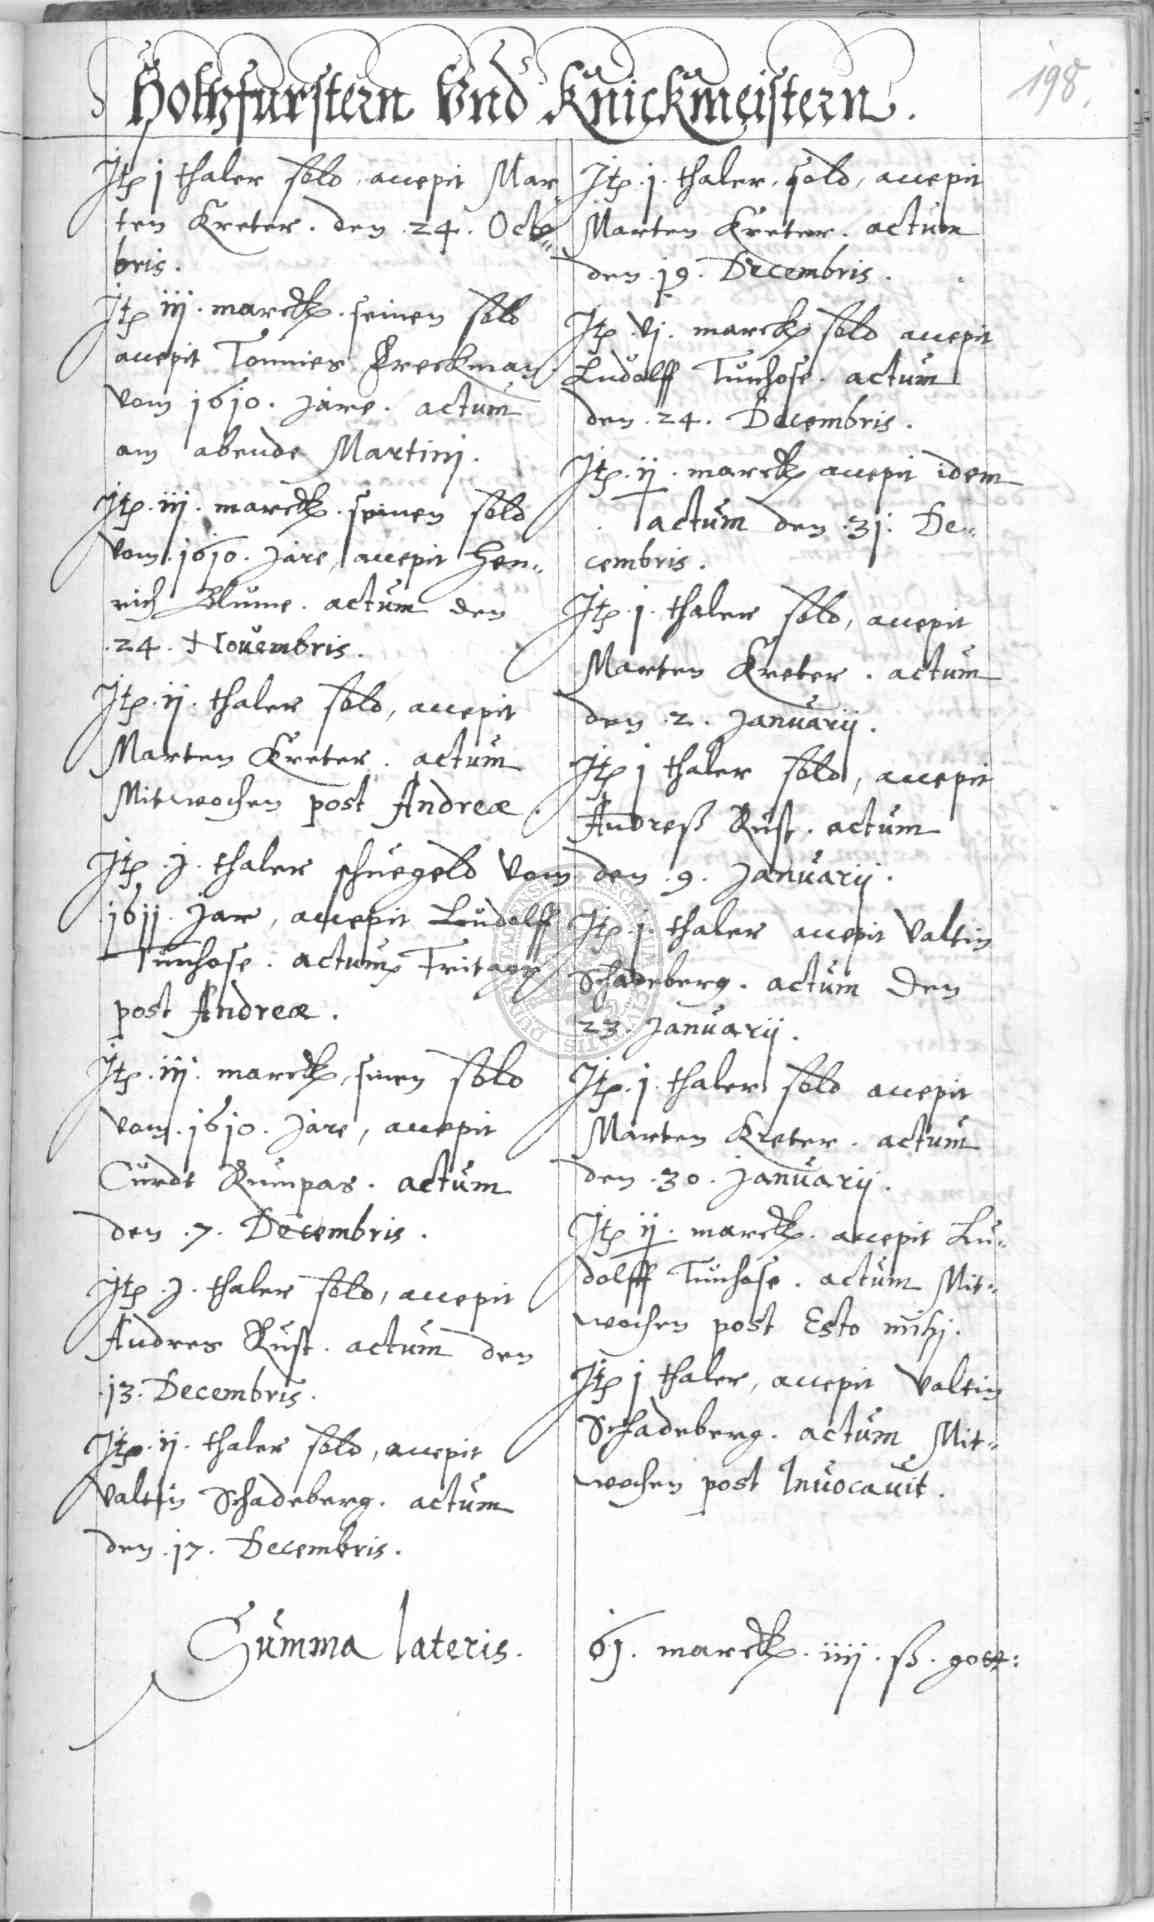 Holtzfurstern Und Knickmeistern.
198.
Itp j thaler sold, accepit Mar
ten Kreter. den .24. Octo=
bris.
Itp iij. marck. seinen sold
accepit Tonnies Freckman
vom 1610. jare. actum
am abende Martinj.
Itp. iij. marck. seinen sold
vom. 1610. Jare, accepit Hen=
rich Blume. actum den
.24. Novembris.
Itp. ij. thaler sold, accepit
Marten Kreter. actum
Mitwochen post Andreæ.
Itp. j. thaler schuegeld vom
1611. Jar, accepit Ludolff
Tunhose. actum Fritagg
post Andreæ.
Itp. iij. marck, sinen sold
vom. 1610. Jare, accepit
Curdt Rumpas. actum
den .7. Decembris.
Itp. j. thaler sold, accepit
Andres Rust. actum den
.13. Decembris.
Itp. ij. thaler sold, accepit
Valtin Schadeberg. actum
den .17. Decembris.
Itp. j. thaler. sold, accepit
Marten Kreter. actum
den .19. Decembris.
Itp. vj. marck sold accepit
Ludolff Tunhose. actum
den .24. Decembris.
Itp. ij. marck accepit idem
actum den .31. De=
cembris.
Itp. j. thaler sold, accepit
Marten Kreter. actum
den .2. Januarij.
Itp j thaler sold, accepit
Andreß Rust. actum
den .9. Januarij.
Itp. j. thaler accepit Valtin
Schadeberg. actum den
23. Januarij.
Itp. j. thaler sold accepit
Marten Kreter. actum
den .30. Januarij.
Itp ij. marck. accepit Lu=
dolff Tunhose. actum Mit=
wochen post Esto mihj.
Itp j thaler, accepit Valtin
Schadeberg. actum Mit=
wochen post Invocavit.
Summa lateris.
61. marck. iiij. ß. gott: